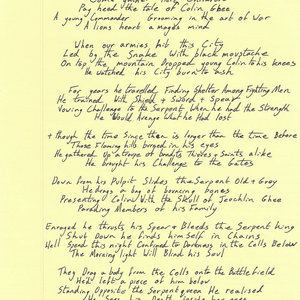 Pay head the tale of Colin Ghee
A young Commander Grooming in the art of War
A lions heart a mages mind
When our armies hit this City
Led by the Snake With black moustache
On top the mountain Dropped young Colin to his knees
He watched his City burn to ash
For years he travelled, Finding Shelter Among Fighting Men
He trained With Shield + Sword + Spear
Vowing Challenge to the Serpent When he had the Strength
He Would Avenge What He Had lost
+ though the time Since then is longer than the time Before
Those Flaming hills burged in his eyes
He gathered Up a troupe of bandits Thieves + Saints alike
He brought his Challenge to the Gates
Down from his Pulpit Slides the Serpent Old + Gray
He drags a bag of bouncing bones
Presenting Colin With the Skull of Jocklin Ghee
Parading Members of his Family
Enraged he thrusts his Spear + Bleeds the Serpent King
Shut Down he finds him Self in Chains
Hell Spend this night Confined to Darkness in the Cells Below
The Morning light Will Blind his Soul
They Drag a body from the Cells onto the Battlefield
Hed left a piece of him below
Standing Opposite the Serpent green He realised